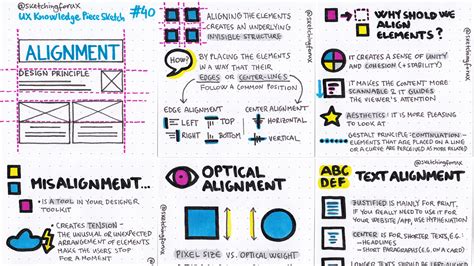 @sketchingforux
UX Knowledge Piece Sketch #40
ALIGNMENT
DESIGN PRINCIPLE
ALIGNING THE ELEMENTS
CREATES AN UNDERLYING
INVISIBLE STRUCTURE
HOW?
BY PLACING THE ELEMENTS
IN A WAY THAT THEIR
EDGES OR CENTER-LINES
FOLLOW A COMMON POSITION
EDGE ALIGNMENT
LEFT
TOP
RIGHT
BOTTOM
CENTER ALIGNMENT
HORIZONTAL
VERTICAL
@sketchingforux
WHY SHOULD WE
ALIGN
ELEMENTS?
IT CREATES A SENSE OF UNITY
AND COHESION (+STABILITY)
IT MAKES THE CONTENT MORE
SCANNABLE & IT GUIDES
THE VIEWER'S ATTENTION
AESTHETICS: IT IS MORE PLEASING
TO LOOK AT
GESTALT PRINCIPLE: CONTINUATION -
ELEMENTS THAT ARE PLACED ON A LINE
OR A CURVE ARE PERCEIVED AS MORE RELATED
@sketchingforux
MISALIGNMENT...
IS A TOOL IN YOUR DESIGNER
TOOLKIT
CREATES TENSION -
THE UNUSUAL OR UNEXPECTED
ARRANGEMENT OF ELEMENTS
MAKE THE USERS STOP
FOR A MOMENT
@sketchingforux
OPTICAL
ALIGNMENT
PIXEL SIZE VS. OPTICAL WEIGHT
ABC
DEF
@sketchingforux
TEXT ALIGNMENT
JUSTIFIED IS MAINLY FOR PRINT,
IF YOU REALLY NEED TO USE IT FOR
YOUR WEBSITE / APP, USE HYPHENATION
CENTER IS FOR SHORTER TEXTS, E.G.:
- HEADLINES
- SHORT PARAGRAPHS (E.G. ON A CARD)